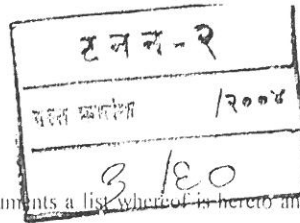 ट न न - २
दस्त क्रमांक /२००४
३/६०
uments a list whereof is hereto an